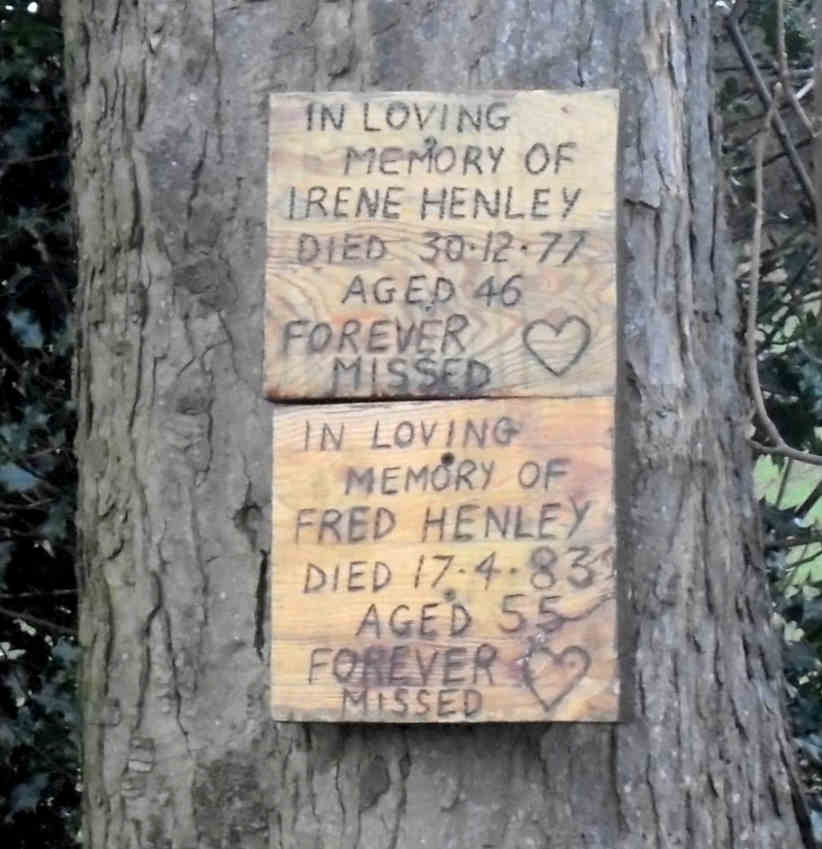 IN LOVING
MEMORY OF
IRENE HENLEY
DIED 30·12·77
AGED 46
FOREVER
MISSED
IN LOVING
MEMORY OF
FRED HENLEY
DIED 17·4·83
AGED 55
FOREVER
MISSED